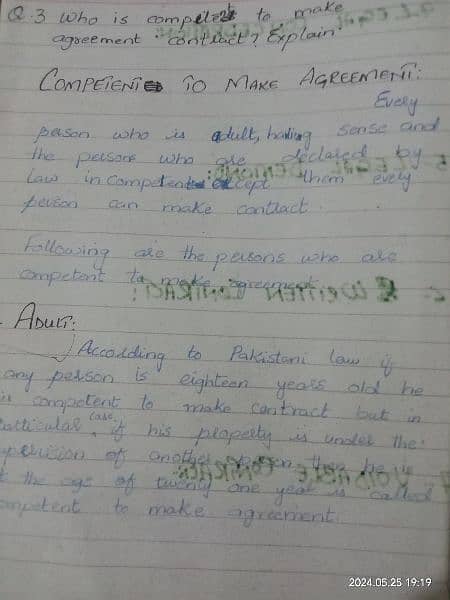 Q.3 Who is competent to make
agreement contract? Explain
COMPETENT TO MAKE AGREEMENT:
Every
person who is adult, having sense and
the persons who are declared by
law incompetent except them every
person can make contract.
Following are the persons who are
competent to make agreement
ADULT:
According to Pakistani law if
any person is eighteen years old he
is competent to make contract but in
particular case, if his property is under the
supervision of another person then he is
at the age of twenty one year is called
competent to make agreement.
WRITTEN CONTRACT:
VOIDABLE CONTRACT:
2024.05.25 19:19